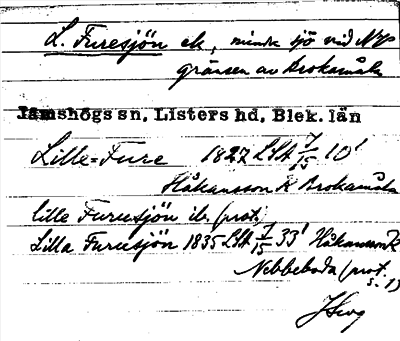 L. Furesjön ek, mindre sjö vid NV
gränsen av Brokamåla
Jämshögs sn, Listers hd, Blek. län
Lille=Fure 1827 LSA 7/15 10'
Håkansson K Brokamåla
lille Furusjön ib. (prot.)
Lilla Furusjön 1835 LSA 7/15 33' Håkansson K
Nebbeboda (prot.
s. 1)